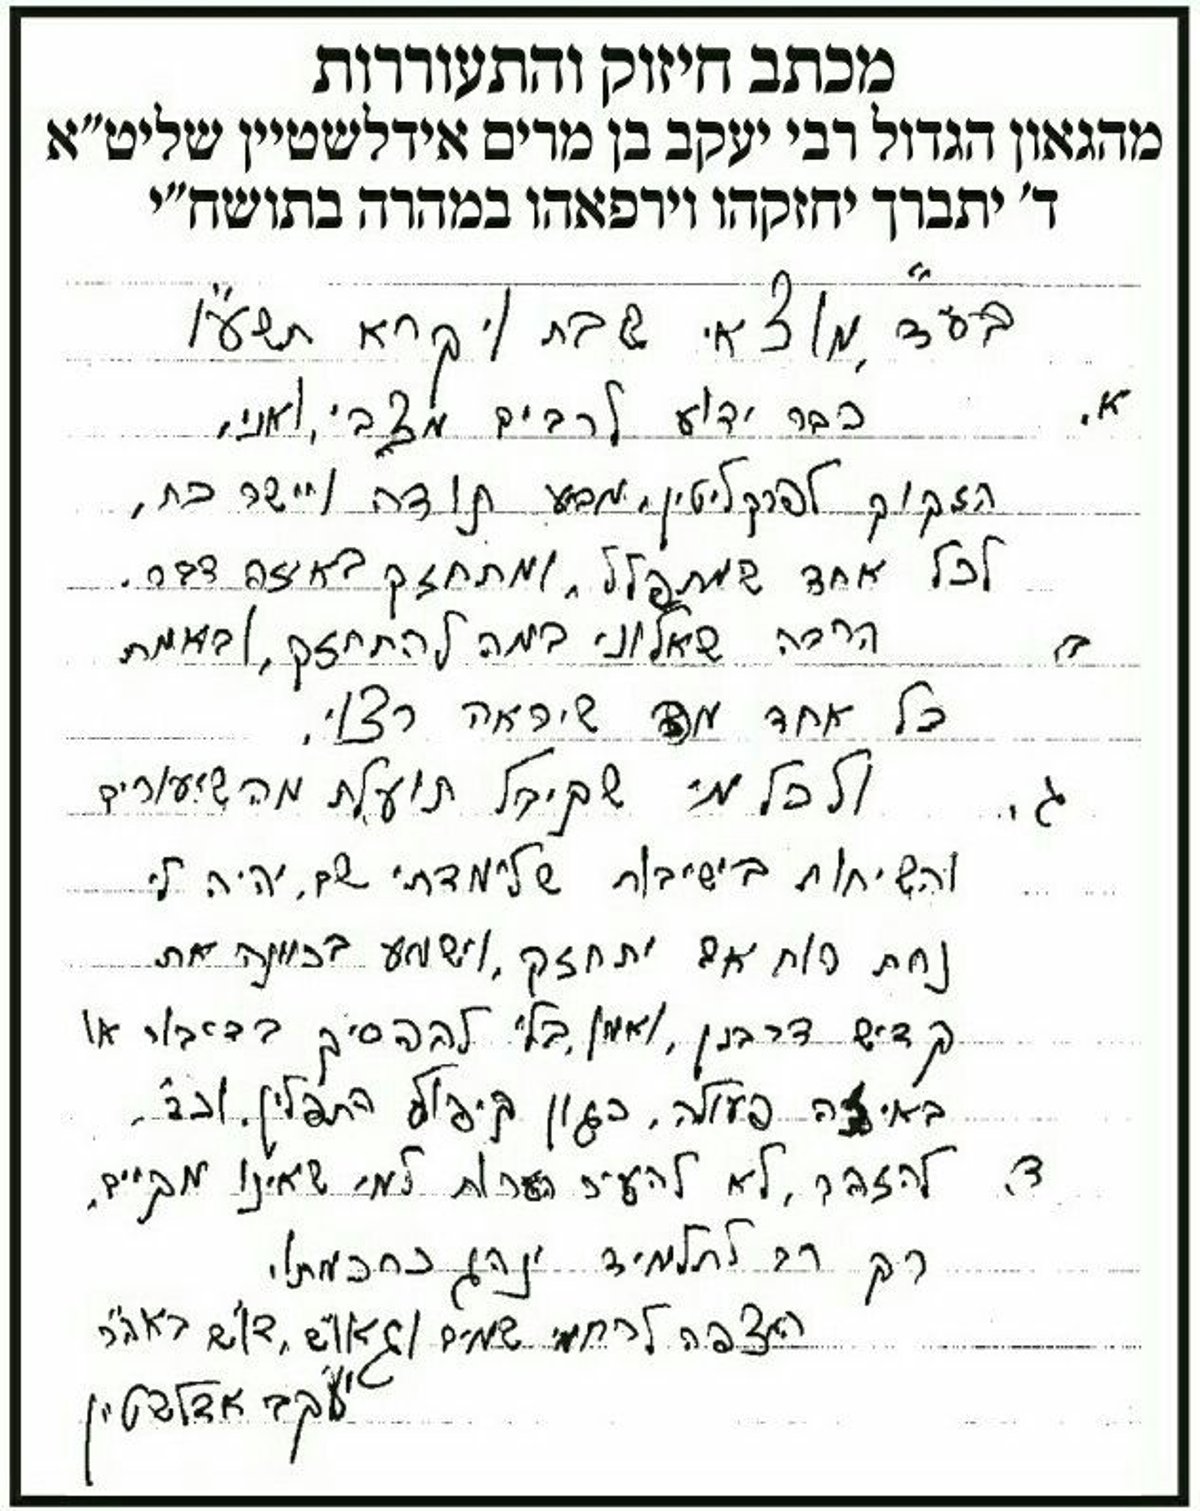 מכתב חיזוק והתעוררות
מהגאון הגדול רבי יעקב בן מרים אידלשטיין שליט״א
ד׳ יתברך יחזקהו וירפאהו במהרה בתושח״י
מוצאי שבת ויקרא תשע"ו
א. כבר ידוע לרבים מצבי, ואני,
הזקוק לפרקליטין, מבע תודה ויישר כח,
לכל אחד שמתפלל, ומתחזק באיזה דבר.
ב הרבה שאלוני במה להתחזק, ובאמת
כל אחד מה שיראה רצוי,
ג. ולכל מי שקיבל תועלת מהשיעורים
והשיחות בישיבות שלימדתי שם, יהיה לי
נחת רוח אם יתחזק, וישמע בכוונה את
קדיש דרבנן, ואמן, בלי להפסיק בדיבור או
באיזה פעולה, כגון קיפול התפלין, וכד'.
ד. להזהר, לא להעיר הערות למי שאינו מקיים,
רק רב לתלמיד ינהג כחכמתו.
המצפה לרחמי שמים וגאו"ש, דו"ש באה"ר
יעקב אדלשטין